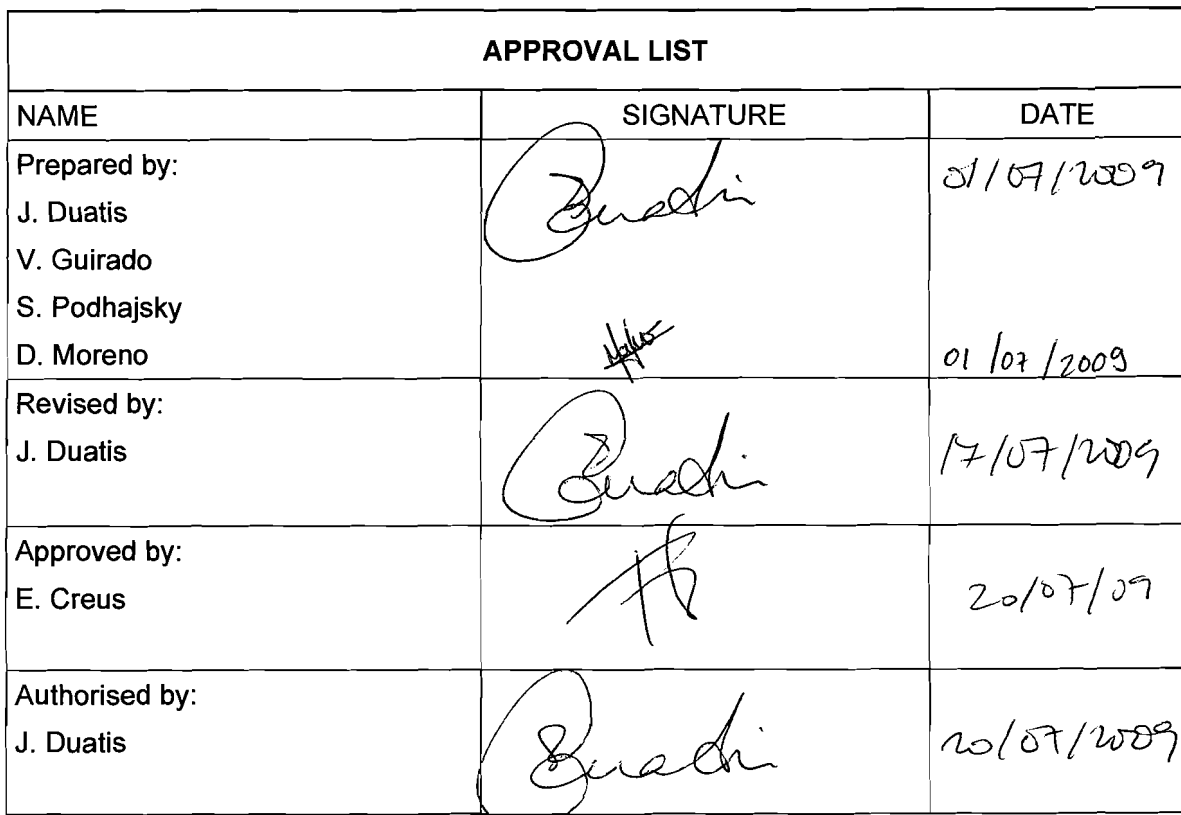 APPROVAL LIST
NAME SIGNATURE DATE
Prepared by: 01/07/2009
J. Duatis Duatis
V. Guirado
S. Podhajsky
D. Moreno 01/07/2009
Revised by:
J. Duatis Duatis 17/07/2009
Approved by:
E. Creus 20/07/09
Authorised by:
J. Duatis Duatis 20/07/2009